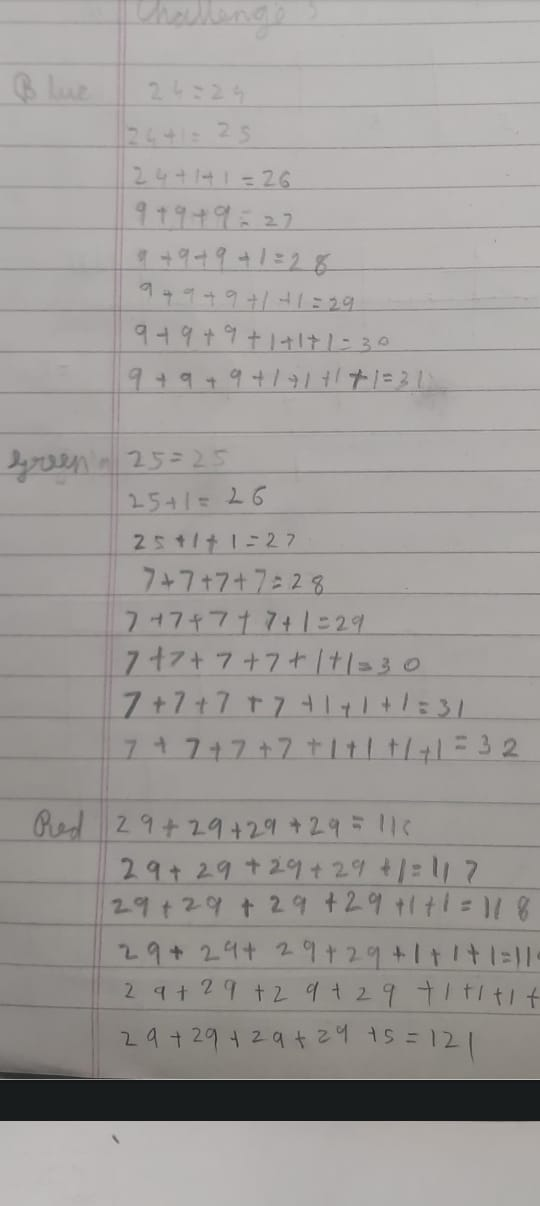 Challenges
Blue 24=24
24+1= 25
24+1+1=26
9+9+9=27
9+9+9+1=28
9+9+9+1+1=29
9+9+9+1+1+1=30
9+9+9+1+1+1+1=31
Green 25=25
25+1= 26
25+1+1=27
7+7+7+7=28
7+7+7+7+1=29
7+7+7+7+1+1=30
7+7+7+7+1+1+1=31
7+7+7+7+1+1+1+1=32
Red 29+29+29+29=116
29+29+29+29+1=117
29+29+29+29+1+1=118
29+29+29+29+1+1+1=11
29+29+29+29+1+1+1+
29+29+29+29+5=121